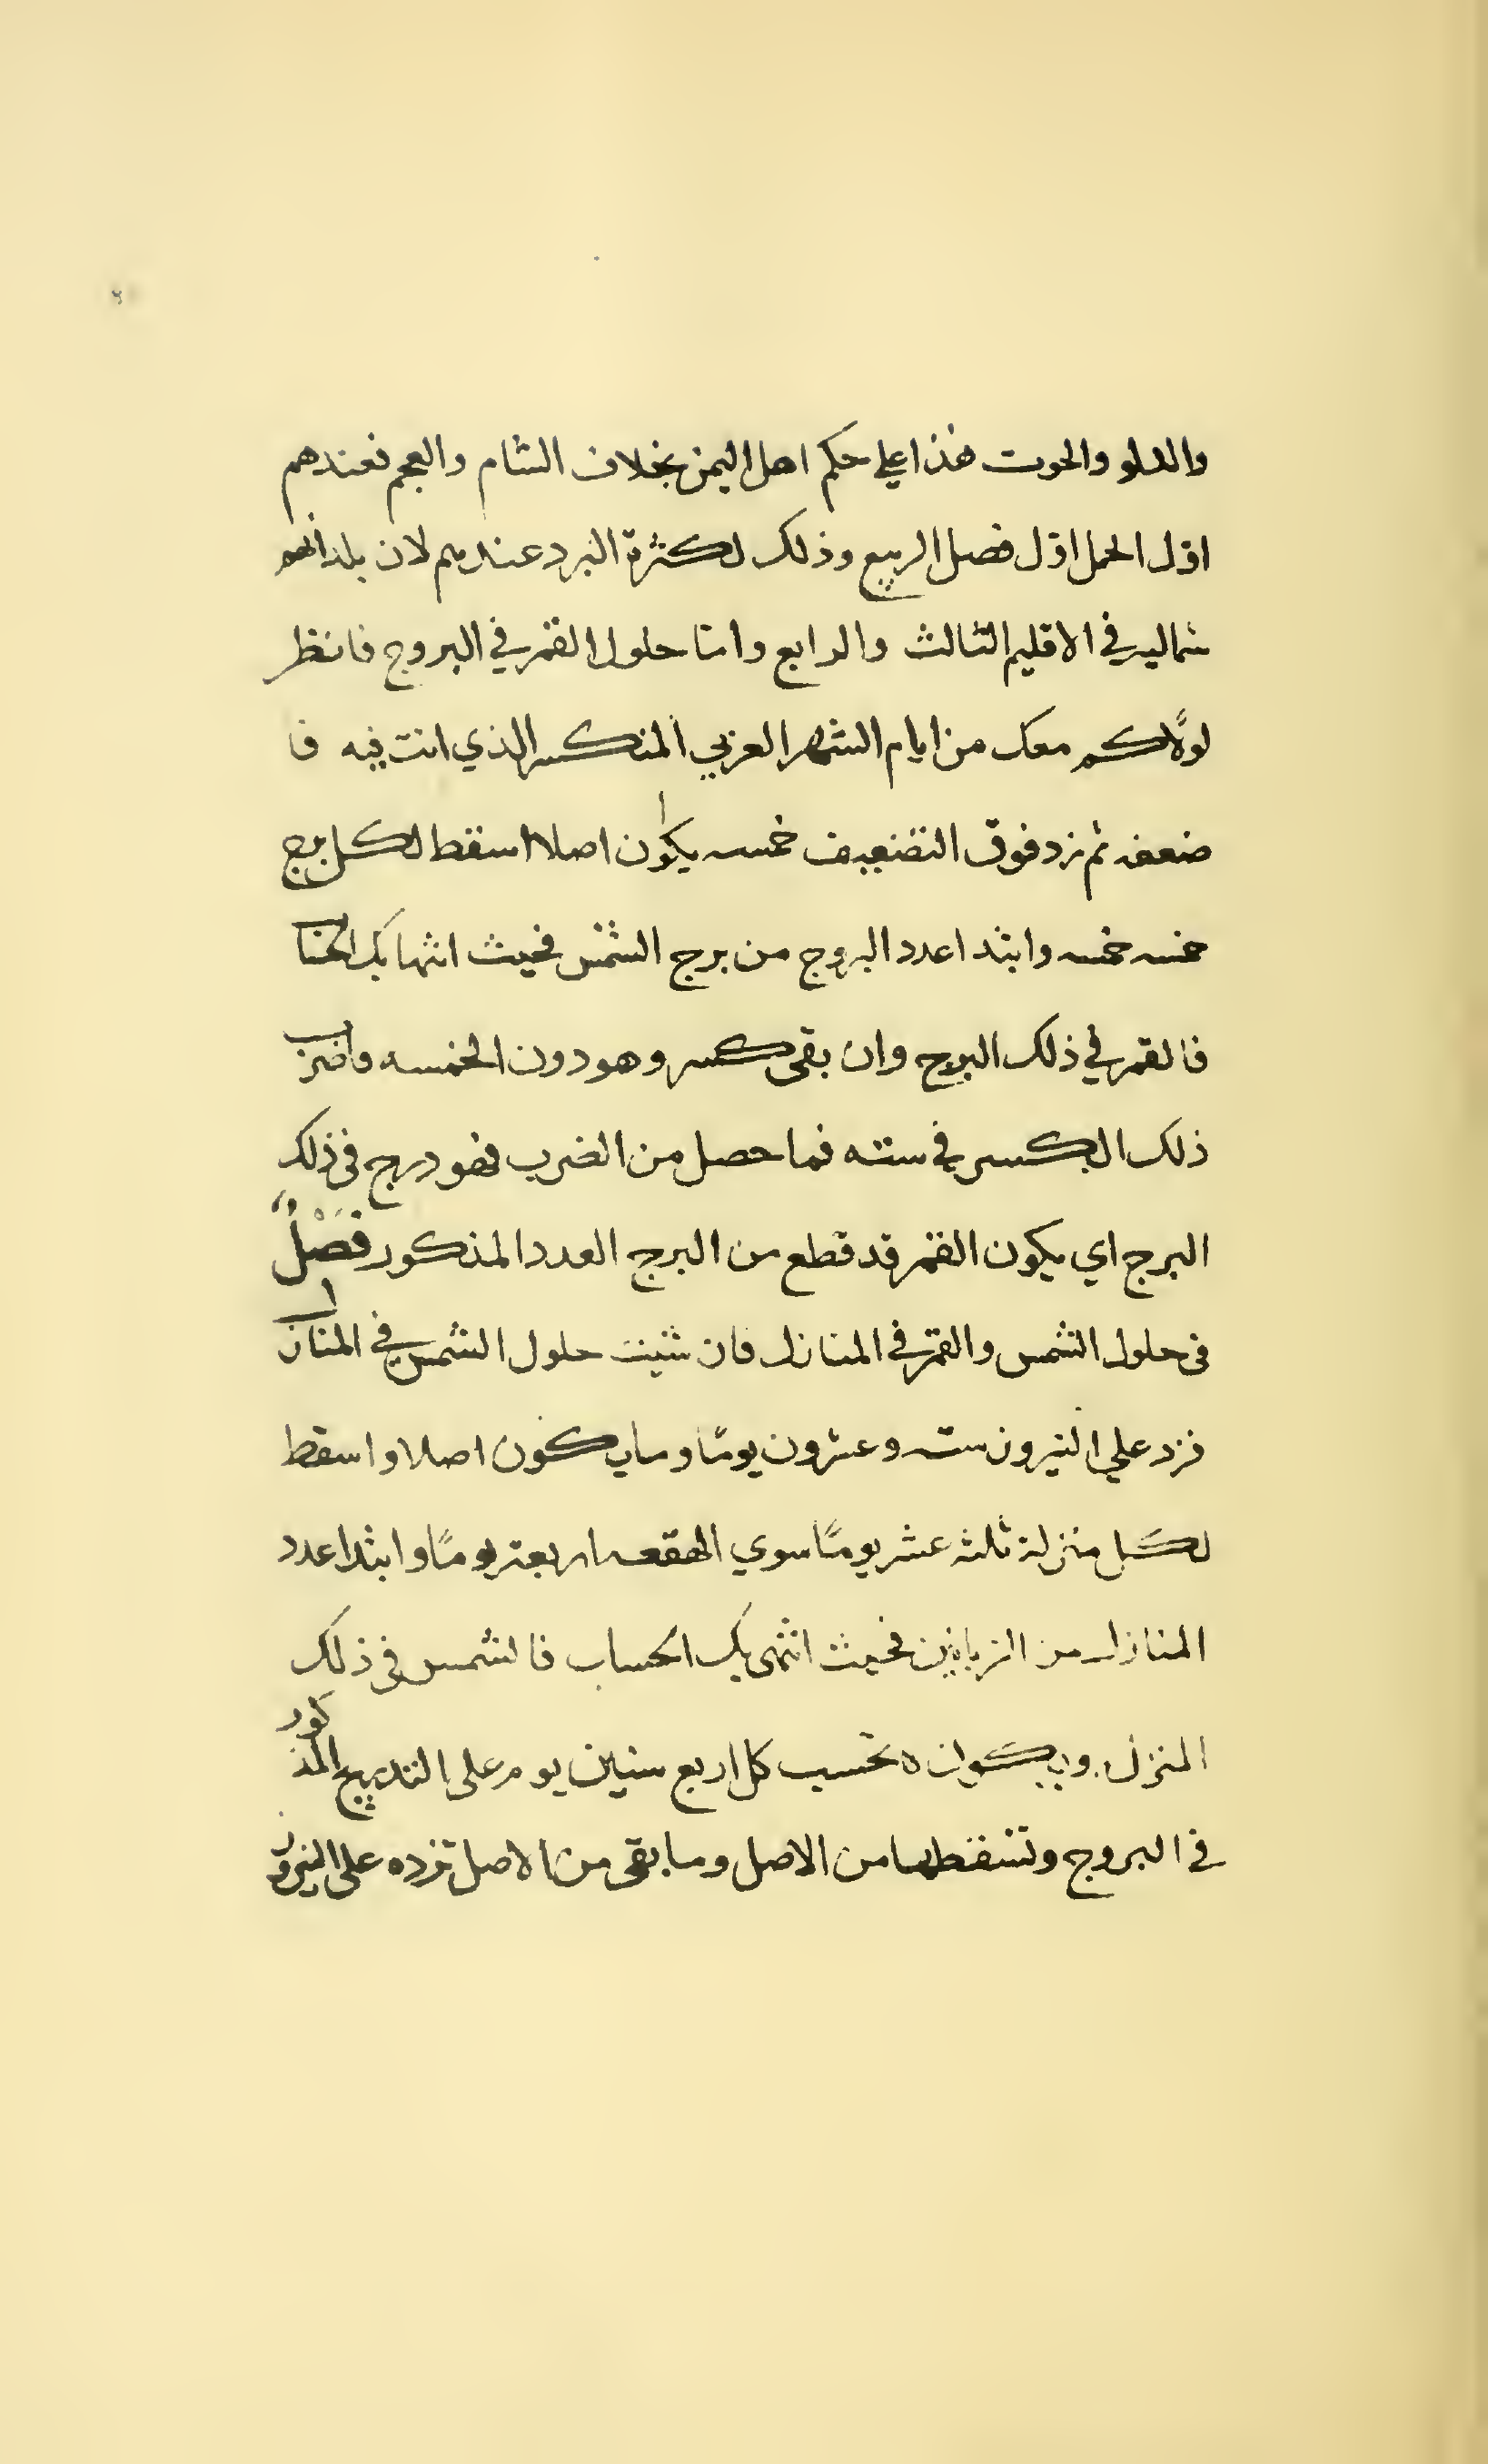 والدلو والحوت هذا علي حكم اهل اليمن بخلاف الشام والعجم فعندهم
اوّل الحمل اوّل فصل الربيع وذلك لكثرة البرد عندهم لان بلدانهم
شماليه في الاقليم الثالث والرابع وامّا حلول القمر في البروج فانظر
اولًا كم معك من ايام الشهر العربي المنكسر الذي انت فيه فا
ضعفه ثم زد فوق التضعيف خمسه يكون اصلا اسقط لكل برج
خمسه خمسه وابتدا عدد البروج من برج الشمس فحيث انتها بك الحساب
فالقمر في ذلك البرج وان بقى كسر وهو دون الخمسه فاضرب
ذلك الكسر في سته فما حصل من الضرب فهو درج في ذلك
البرج اي يكون القمر قد قطع من البرج العدد المذكور فَصْلٌ
في حلول الشمس والقمر في المنازل فان شيت حلول الشمس في المنازل
فزد علي النيرون سته وعشرون يومًا وما يكون اصلا واسقط
لكل منزلة ثلثه عشر يومًا سوي الهقعه اربعة يومًا وابتدا عدد
المنازل من الزبانين فحيث انتهى بك الحساب فالشمس في ذلك
المنزل ويكون ه تحسب كل اربع سنين يوم على التدريج المذكور
في البروج وتسقطها من الاصل وما بقى من الاصل تزده على النيرون